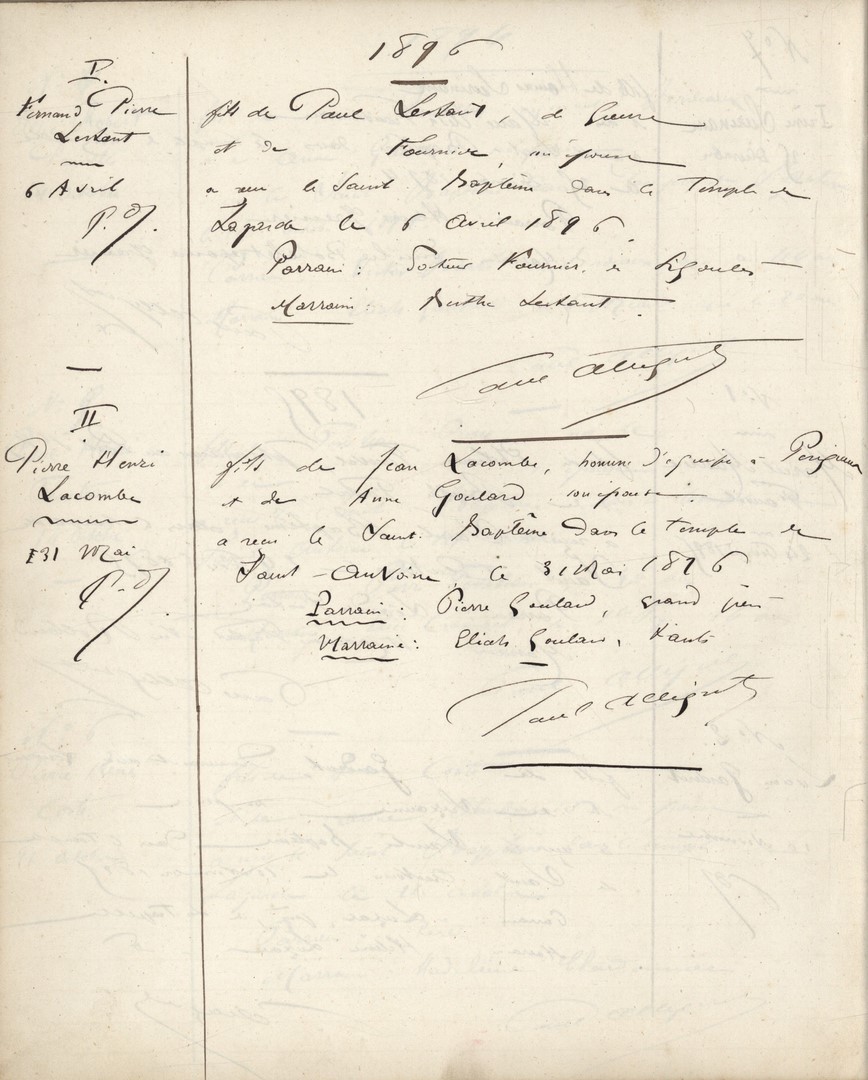 1896
I.
Fernand Pierre
Lestant
6 Avril
P. A.
fils de Paul Lestant, de
et de Fournier, son épouse
a reçu le Saint Baptême dans le Temple de
Lagarde le 6 Avril 1896.
Parrain : Docteur Fournier, de Sigoulès
Marraine : Berthe Lestant.
Paul
II
Pierre Henri
Lacombe
31 Mai
P. A.
fils de Jean Lacombe, homme d'équipe à Périgueux
et de Anne Goulard son épouse.
a reçu le Saint Baptême dans le Temple de
Saint-Antoine, le 31 Mai 1896
Parrain : Pierre Goulard, grand père
Marraine : Goulard, tante
Paul